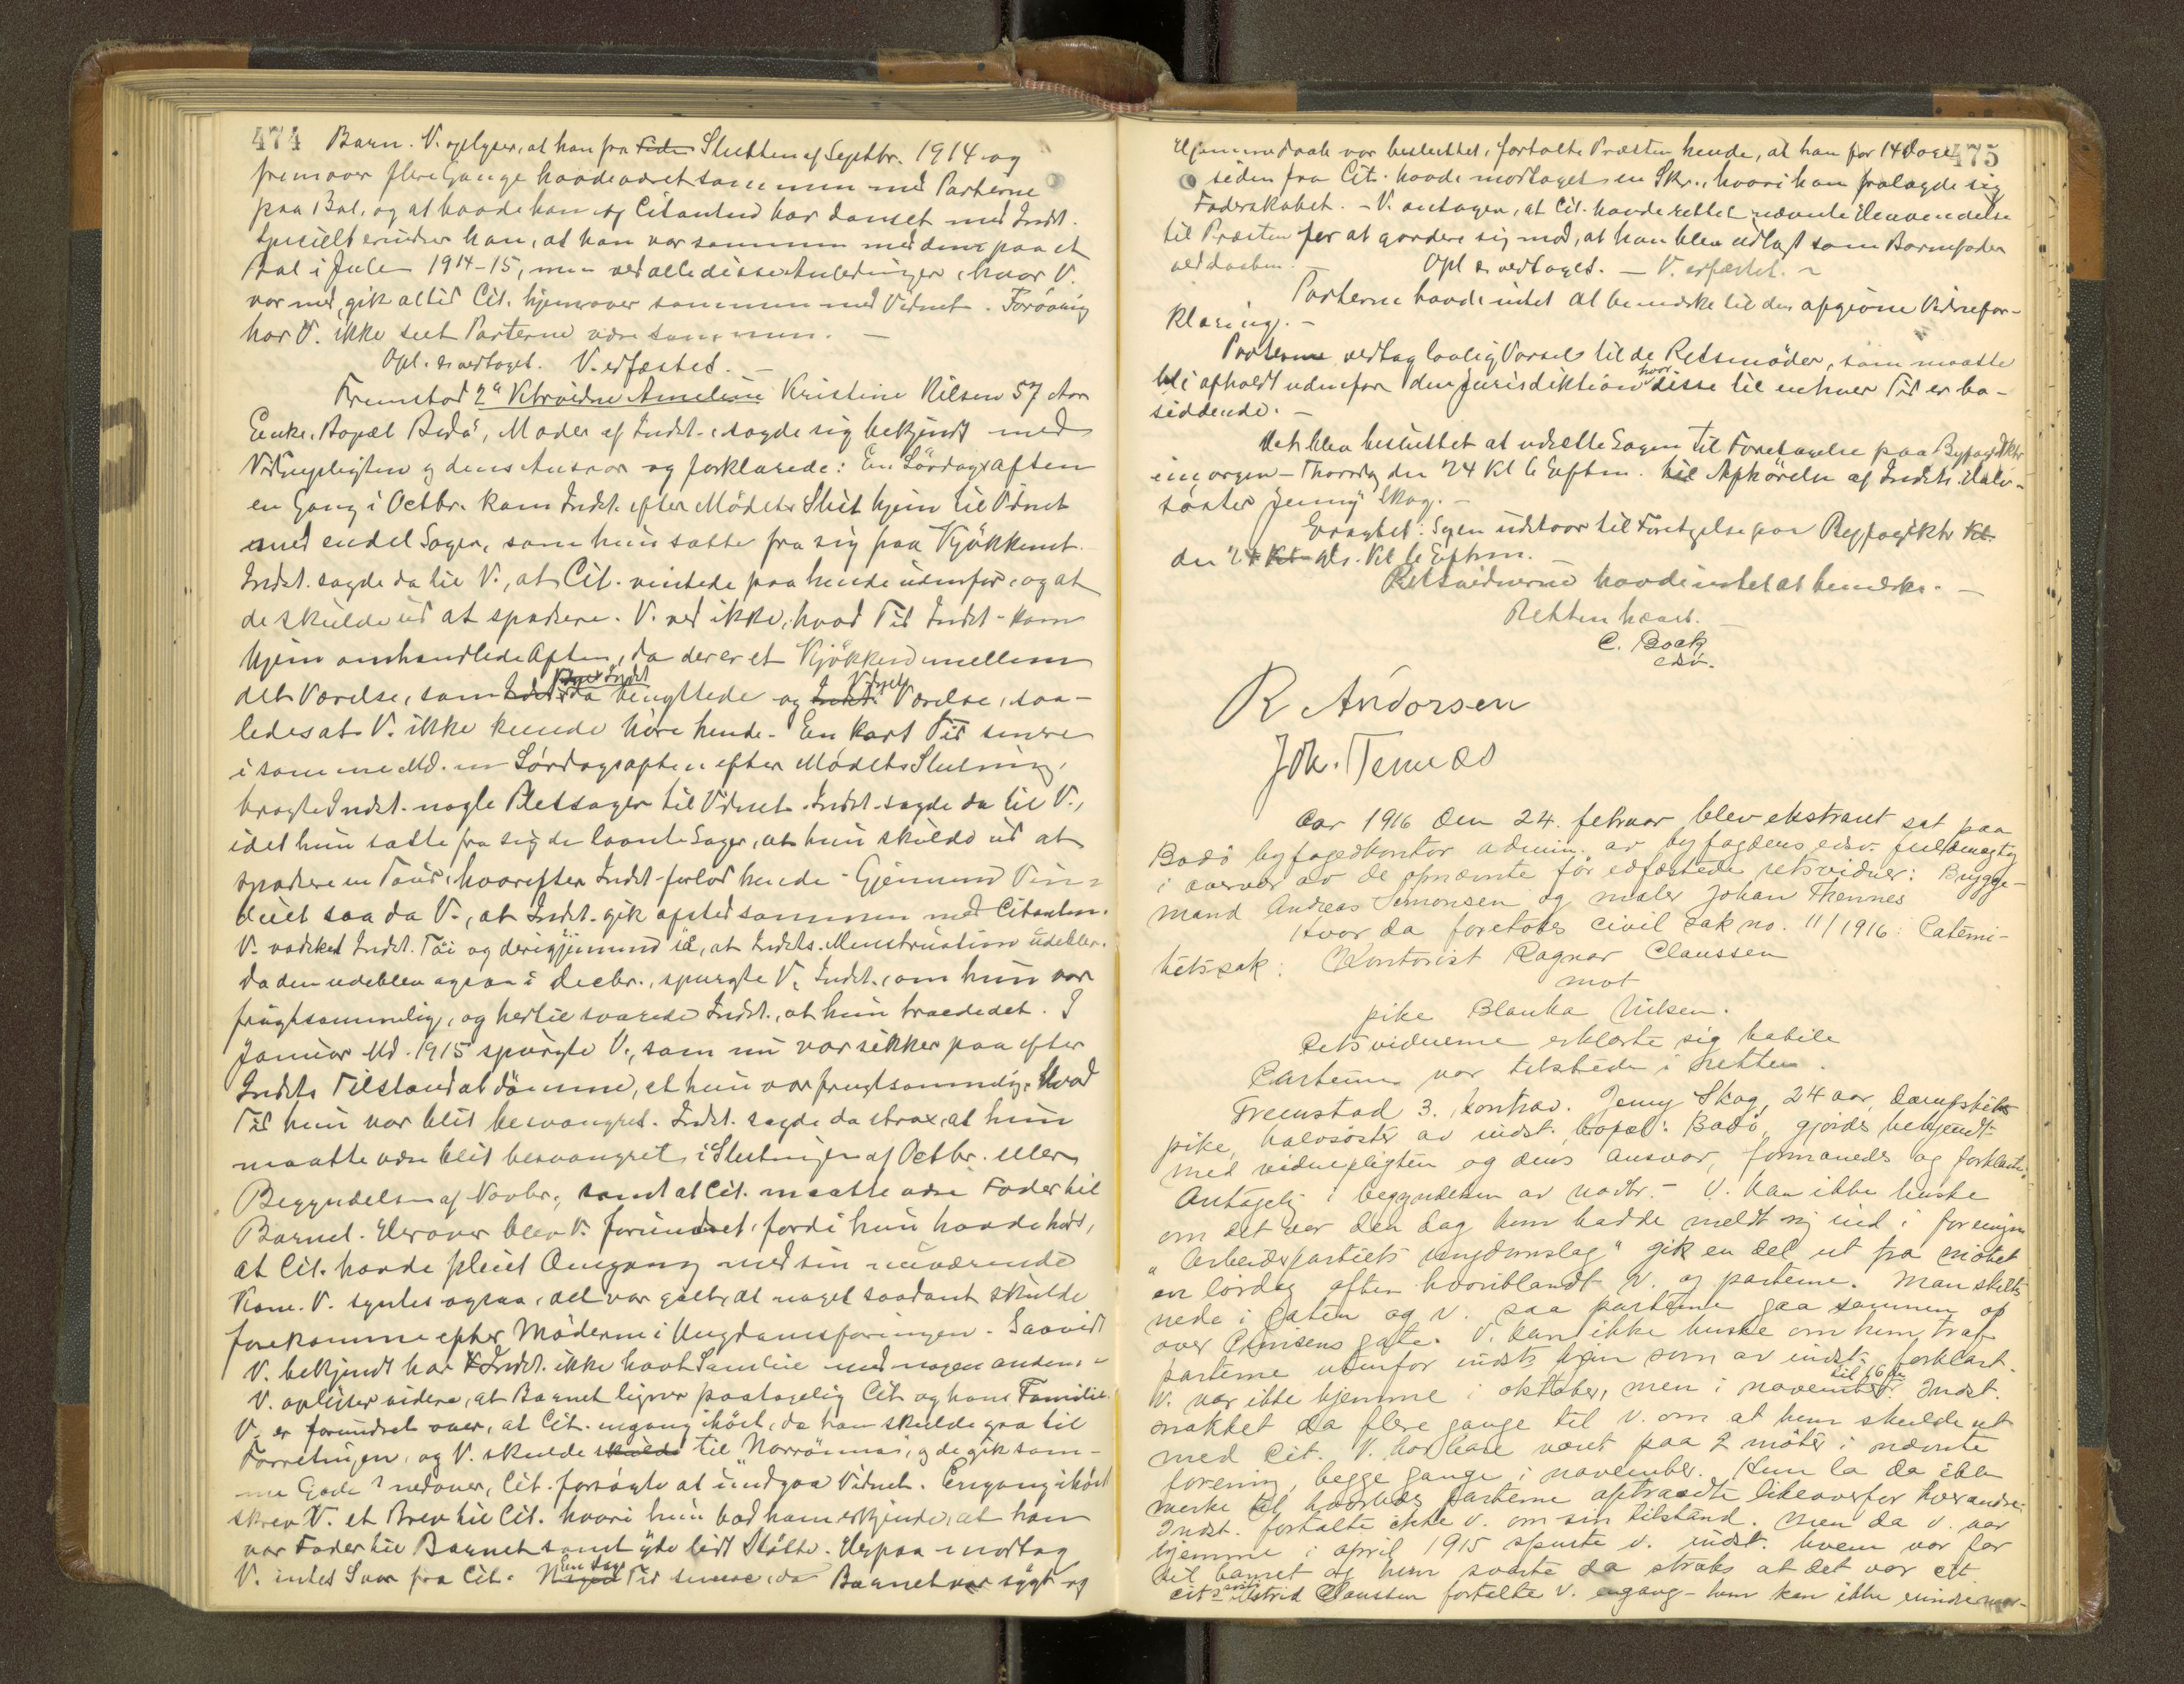 474 Barn. V. oplyser, at han fra Slutten af Septbr. 1914 og
fremover flere Gange havde været sammen med Parterne
paa Bal, og at baade han og Citanten har danset med Indst.
Specielt erindrer han, at han var sammen med dem paa et
Bal i Julen 1914-15, men ved alle disse Anledninger, hvor V.
var med, gik altid Cit. hjemover sammen med Vidnet. Forøvrig
har V. ikke seet Parterne være sammen. —
Opl. & vedtaget. V. edfæsted. —
Fremstod 2det Ktrvidne Ameline Kristine Nilsen 57 Aar
Enke, Bopæl Bodø, Moder af Indst., sagde sig bekjendt med
Vidnepligten og dens Ansvar og forklarede: En Lördagsaften
en Gang i Octbr. kom Indst. efter Mödets Slut hjem til Vidnet
med endel Sager, som hun satte fra sig paa Kjökkenet.
Indst. sagde da til V., at Cit. ventede paa hende udenfor, og at
de skulde ud at spadsere. V. ved ikke, hvad Tid Indst. kom
hjem omhandlede Aften, da der er et Kjökken imellem
det Værelse, som Indst. da benyttede og Vidnets Værelse, saa-
ledes at V. ikke kunde höre hende. En kort Tid senere
i samme Md. en Lördagsaften efter Mödets Slutning,
bragte Indst. nogle Sager til Vidnet. Indst. sagde da til V.,
idet hun satte fra sig de laante Sager, at hun skulde ud at
spadsere en Tour, hvorefter Indst. forlod hende. Gjennem Vin-
duet saa da V., at Indst. gik afsted sammen med Citanten.
V. vasked Indst. Töi og derigjennem saa, at Indsts. Menstruation udeblev.
Da den udeblev ogsaa i Decbr., spurgte V. Indst., om hun var
frugtsommelig, og hertil svarede Indst., at hun troede det. I
Januar Md. 1915 spurgte V., som nu var sikker paa efter
Indsts Tilstand at dömme, at hun var frugtsommelig, hvad
Tid hun var blit besvangret. Indst. sagde da strax, at hun
maatte være blit besvangret i Slutningen af Octbr. eller
Begyndelsen af Novbr., samt at Cit. maatte være Fader til
Barnet. Herover blev V. forundret, fordi hun havde hört,
at Cit. havde pleiet Omgang med sin nuværende
Kone. V. syntes ogsaa, det var galt, at noget saadant skulde
forekomme efter Möderne i Ungdomsforeningen. Saavidt
V. bekjendt har Indst. ikke havt Samleie med nogen anden. —
V. oplyser videre, at Barnet ligner paatagelig Cit. og hans Familie.
V. er forundret over, at Cit. engang ihöst, da han skulde gaa til
Forretningen, og V. skulde skulde til Norrönna, og de gik sam-
me Gade nedover, Cit. forsögte at undgaa Vidnet. Engang ihöst
skrev V. et Brev til Cit. hvori hun bad ham erkjende, at han
var Fader til Barnet samt yde lidt Stötte. Herpaa modtog
V. intet Svar fra Cit. En Tid senere, da Barnet var sygt og
475
Hjemmedaab var besluttet, fortalte Præsten hende, at han for 14 Dage
siden fra Cit. havde modtaget en Skr., hvori han fralagde sig
Faderskabet. — V. antager, at Cit. havde rettet nævnte Henvendelse
til Præsten for at gardere sig mod, at han blev udlagt som Barnefader
ved daaben. — Opl & vedtaget. — V. edfæstet. —
Parterne havde intet at bemærke til den afgivne Vidnefor-
klaring. —
Parterne vedtag lovlig Varsel til de Retsmöder, som maatte
bli afholdt udenfor den Jurisdiktion hvor disse til enhver Tid er bo-
siddende. —
Det blev besluttet at udsætte Sagen til Foretagelse paa Byfogdktr
imorgen — Thorsdag den 24 Kl 6 Eftm. til Afhörelse af Indsts Halv-
söster Jenny Skog. —
Eragtet: Sagen udstaar til Foretagelse paa Byfogdktr Kl.
den 24 Kl. ds. Kl 6 Eftm.
Retsvidnerne havde intet at bemærke. —
Retten hævet. —
C. Bock
edsv.
R Andorsen
Joh. Tennes
Aar 1916 den 24. februar blev ekstraret sat paa
Bodö byfogedkontor admin. av byfogdens edsv. fuldmægtig
i overvær av de opnævnte för edfæstede retsvidner: Brygge-
mand Andreas Simonsen og maler Johan Thennes
Hvor da foretokes civil sak no. 11/1916: Paterni-
tetssak: Kontorist Ragnar Claussen
mot
pike Blanka Nilsen.
Retsvidnerne erklærte sig habile
Parterne var tilstede i retten.
Fremstod 3. kontrav. Jenny Skog, 24 aar, dampskibs
pike, halvsöster av indst. bopæl: Bodö, gjordes bekjendt
med vidnepligten og dens ansvar, formanedes og forklarte:
Antagelig i begyndelsen av novbr. — V. kan ikke huske
om det var den dag hun hadde meldt sig ind i foreningen
"Arbeiderpartiets ungdomslag" gik en del ut fra mötet
en lördag aften hvoriblandt V. og parterne. Man skiltes
nede i gaten og V. saa parterne gaa sammen op
over Prinsens gate. V. kan ikke huske om hun traf
parterne utenfor indsts hjem som av indst. forklart.
V. var ikke hjemme i oktober, men i november til 16 de. Indst.
snakket da flere gange til V. om at hun skulde ut
med Cit. V. har bare været paa 2 möter i nævnte
forening, begge gange i november. Hun la da ikke
merke til hvorledes parterne optraadte likeoverfor hverandre.
Indst. fortalte ikke V. om sin tilstand. Men da V. var
hjemme i april 1915 spurte V. indst. hvem var far
til barnet og hun svarte da straks at det var cit
cits söster Astrid Claussen fortalte V. engang — hun kan ikke erindre naar—